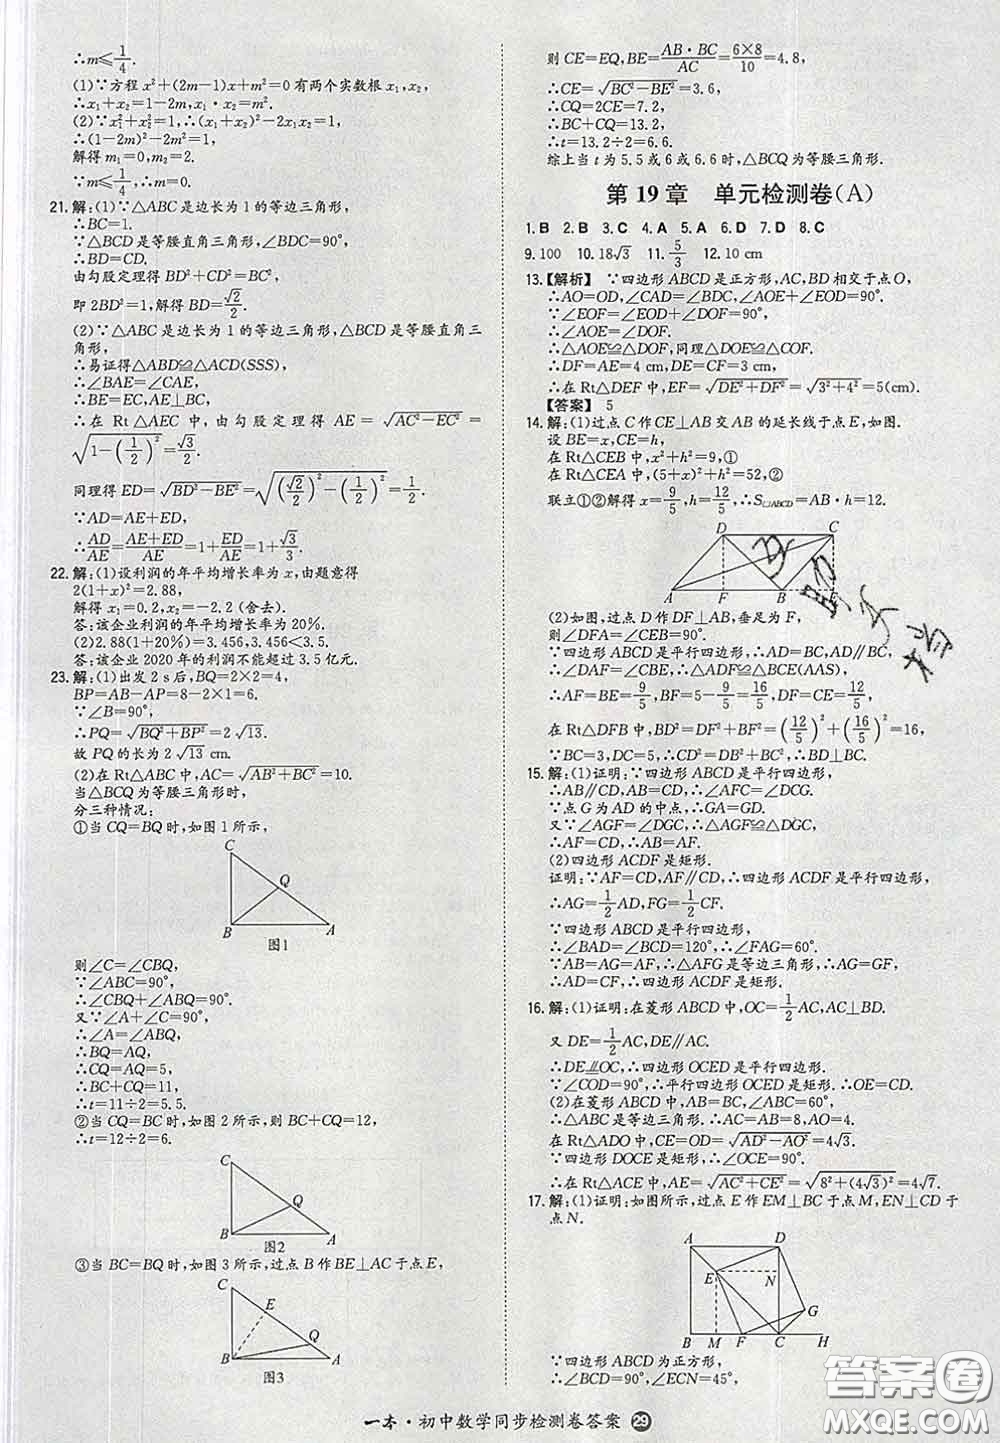 ∴m≤1/4.
(1)∵方程 x²+(2m−1)x+m²=0有两个实数根 x₁,x₂,
∴x₁+x₂=1−2m,x₁·x₂=m².
(2)∵x₁²+x₂²=1,∴(x₁+x₂)²−2x₁x₂=1,
∴(1−2m)²−2m²=1,
解得 m₁=0,m₂=2.
∵m≤1/4,∴m=0.
21.解:(1)∵△ABC是边长为1的等边三角形,
∴BC=1.
∵△BCD是等腰直角三角形,∠BDC=90°,
∴BD=CD.
由勾股定理得 BD²+CD²=BC²,
即2BD²=1,解得 BD=√2/2.
(2)∵△ABC是边长为1的等边三角形,△BCD是等腰直角三
角形,
∴易证得△ABD≌△ACD(SSS),
∴∠BAE=∠CAE,
∴BE=EC,AE⊥BC,
∴在 Rt△AEC 中,由勾股定理得 AE=√(AC²−EC²)=
√(1−(1/2)²)=√3/2.
同理得 ED=√(BD²−BE²)=√((√2/2)²−(1/2)²)=1/2.
∵AD=AE+ED,
∴AD/AE=(AE+ED)/AE=1+ED/AE=1+√3/3.
22.解:(1)设利润的年平均增长率为 x,由题意得
2(1+x)²=2.88,
解得 x₁=0.2,x₂=−2.2(舍去).
答:该企业利润的年平均增长率为20%.
(2)2.88(1+20%)=3.456,3.456<3.5.
答:该企业2020年的利润不能超过3.5亿元.
23.解:(1)出发2 s后,BQ=2×2=4,
BP=AB−AP=8−2×1=6.
∵∠B=90°,
∴PQ=√(BQ²+BP²)=2√13.
故 PQ的长为2√13 cm.
(2)在 Rt△ABC中,AC=√(AB²+BC²)=10.
当△BCQ为等腰三角形时,
分三种情况:
①当 CQ=BQ时,如图1所示,
C
Q
B A
图1
则∠C=∠CBQ,
∵∠ABC=90°,
∴∠CBQ+∠ABQ=90°.
又∵∠A+∠C=90°,
∴∠A=∠ABQ,
∴BQ=AQ,
∴CQ=AQ=5,
∴BC+CQ=11,
∴t=11÷2=5.5.
②当 CQ=BC时,如图2所示,则 BC+CQ=12,
∴t=12÷2=6.
C
Q
B A
图2
③当 BC=BQ时,如图3所示,过点 B作BE⊥AC于点E,
C
E
Q
B A
图3
则 CE=EQ,BE=AB·BC/AC=6×8/10=4.8,
∴CE=√(BC²−BE²)=3.6,
∴CQ=2CE=7.2,
∴BC+CQ=13.2,
∴t=13.2÷2=6.6.
综上当 t为5.5或6或6.6时,△BCQ为等腰三角形.
第19章 单元检测卷(A)
1.B 2.B 3.C 4.A 5.A 6.D 7.D 8.C
9.100 10.18√3 11.5/3 12.10 cm
13.【解析】 ∵四边形 ABCD是正方形,AC,BD相交于点O,
∴AO=OD,∠CAD=∠BDC,∠AOE+∠EOD=90°.
∵∠EOF=∠EOD+∠DOF=90°,
∴∠AOE=∠DOF.
∴△AOE≌△DOF,同理△DOE≌△COF.
∴DF=AE=4 cm,DE=CF=3 cm.
∴在 Rt△DEF中,EF=√(DE²+DF²)=√(3²+4²)=5(cm).
【答案】 5
14.解:(1)过点 C作CE⊥AB交AB的延长线于点E,如图.
设 BE=x,CE=h,
在 Rt△CEB中,x²+h²=9,①
在 Rt△CEA中,(5+x)²+h²=52,②
联立①②解得 x=9/5,h=12/5,∴S▱ABCD=AB·h=12.
D C
A F B E
(2)如图,过点D作DF⊥AB,垂足为F,
则∠DFA=∠CEB=90°.
∵四边形ABCD是平行四边形,∴AD=BC,AD∥BC,
∴∠DAF=∠CBE,∴△ADF≌△BCE(AAS),
∴AF=BE=9/5,BF=5−9/5=16/5,DF=CE=12/5,
在 Rt△DFB中,BD²=DF²+BF²=(12/5)²+(16/5)²=16,
∵BC=3,DC=5,∴CD²=DB²+BC²,∴BD⊥BC.
15.解:(1)证明:∵四边形 ABCD是平行四边形,
∴AB∥CD,AB=CD,∴∠AFC=∠DCG.
∵点 G为AD的中点,∴GA=GD.
又∵∠AGF=∠DGC,∴△AGF≌△DGC,
∴AF=CD,∴AB=AF.
(2)四边形 ACDF是矩形.
证明:∵AF=CD,AF∥CD,∴四边形 ACDF是平行四边形,
∴AG=1/2AD,FG=1/2CF.
∵四边形 ABCD是平行四边形,
∴∠BAD=∠BCD=120°,∴∠FAG=60°.
∵AB=AG=AF,∴△AFG是等边三角形,∴AG=GF,
∴AD=CF,∴四边形 ACDF是矩形.
16.解:(1)证明:在菱形 ABCD中,OC=1/2AC,AC⊥BD.
又 DE=1/2AC,DE∥AC.
∴DE⫽OC,∴四边形 OCED是平行四边形.
∵∠COD=90°,∴平行四边形 OCED是矩形.
(2)在菱形 ABCD中,AB=BC,∠ABC=60°,
∴△ABC是等边三角形,∴AC=AB=8,AO=4.
在 Rt△ADO中,CE=OD=√(AD²−AO²)=4√3.
∵四边形 DOCE是矩形,
∴在 Rt△ACE中,AE=√(AC²+CE²)=√(8²+(4√3)²)=4√7.
17.解:(1)证明:如图所示,过点E作EM⊥BC于点M,EN⊥CD于
点N.
A D
E N
G
B M F C H
∵四边形 ABCD为正方形,
∴∠BCD=90°,∠ECN=45°,
一本·初中数学同步检测卷答案 29
答案圈
MXQE.COM